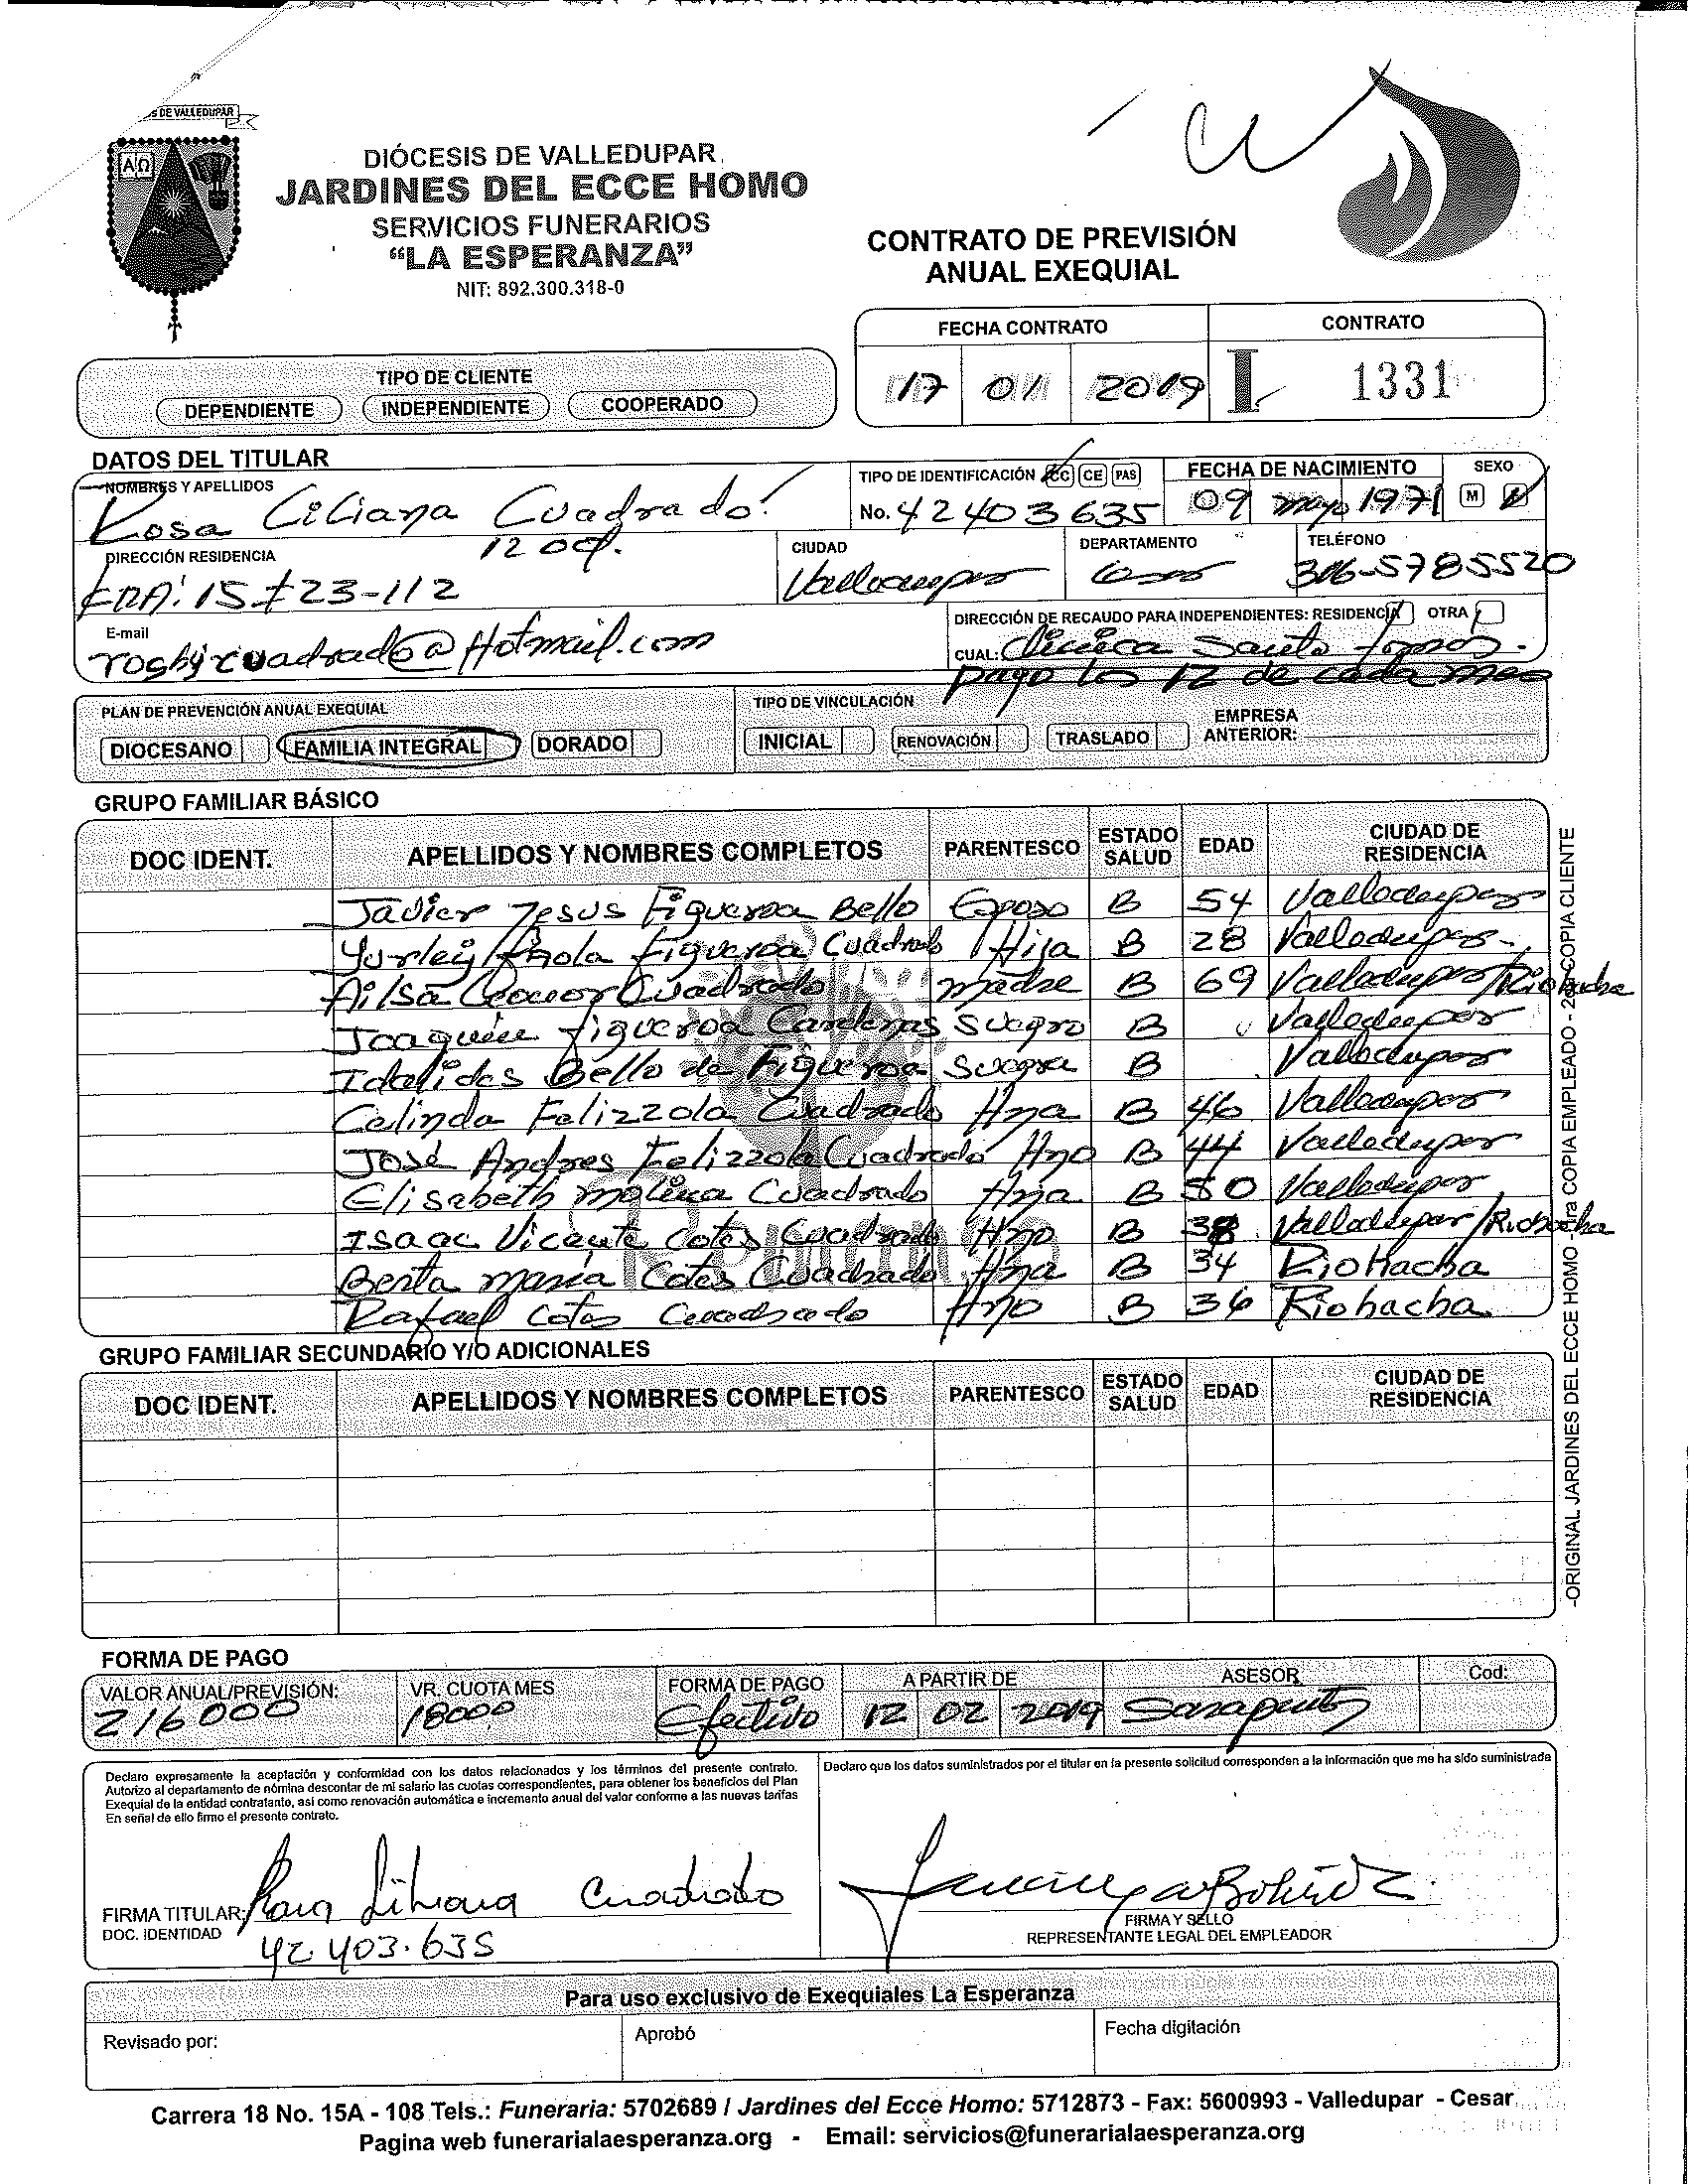 S DE VALLEDUPAR
Α Ω
DIÓCESIS DE VALLEDUPAR
JARDINES DEL ECCE HOMO
SERVICIOS FUNERARIOS
“LA ESPERANZA”
NIT: 892.300.318-0
CONTRATO DE PREVISIÓN
ANUAL EXEQUIAL
FECHA CONTRATO CONTRATO
17 01 2019 L 1331
TIPO DE CLIENTE
DEPENDIENTE INDEPENDIENTE COOPERADO
DATOS DEL TITULAR
NOMBRES Y APELLIDOS TIPO DE IDENTIFICACIÓN CC CE PAS FECHA DE NACIMIENTO SEXO
Rosa Liliana Cuadrado No. 42403635 09 mayo 1971 M F
DIRECCIÓN RESIDENCIA CIUDAD DEPARTAMENTO TELÉFONO
CRA: 15 # 23-112 Valledupar Cesar 316-5785520
E-mail DIRECCIÓN DE RECAUDO PARA INDEPENDIENTES: RESIDENCIA OTRA
rosbycuadrado@Hotmail.com CUAL: Clinica Santo Tomas.
pago los 12 de cada mes
PLAN DE PREVENCIÓN ANUAL EXEQUIAL TIPO DE VINCULACIÓN
DIOCESANO FAMILIA INTEGRAL DORADO INICIAL RENOVACIÓN TRASLADO EMPRESA ANTERIOR:
GRUPO FAMILIAR BÁSICO
DOC IDENT. APELLIDOS Y NOMBRES COMPLETOS PARENTESCO ESTADO SALUD EDAD CIUDAD DE RESIDENCIA
Javier Jesus Figueroa Bello Esposo B 54 Valledupar
Yurley Paola Figueroa Cuadrado Hija B 28 Valledupar
Ailsa Leonor Cuadrado madre B 69 Valledupar/Riohacha
Joaquin Figueroa Cardenas Suegro B Valledupar
Idalides Bello de Figueroa Suegra B Valledupar
Celinda Felizzola Cuadrado Hna B 46 Valledupar
José Andres Felizzola Cuadrado Hno B 44 Valledupar
Elisabeth molina Cuadrado Hna B 50 Valledupar
Isaac Vicente Cotes Cuadrado Hno B 38 Valledupar/Riohacha
Berta maria Cotes Cuadrado Hna B 34 RioHacha
Rafael Cotes Cuadrado Hno B 36 Riohacha
GRUPO FAMILIAR SECUNDARIO Y/O ADICIONALES
DOC IDENT. APELLIDOS Y NOMBRES COMPLETOS PARENTESCO ESTADO SALUD EDAD CIUDAD DE RESIDENCIA
-ORIGINAL JARDINES DEL ECCE HOMO - 1ra COPIA EMPLEADO - 2da COPIA CLIENTE
FORMA DE PAGO
VALOR ANUAL/PREVISIÓN: VR. CUOTA MES FORMA DE PAGO A PARTIR DE ASESOR Cod:
216000 18000 Efectivo 12 02 2019
Declaro expresamente la aceptación y conformidad con los datos relacionados y los términos del presente contrato.
Autorizo al departamento de nómina descontar de mi salario las cuotas correspondientes, para obtener los beneficios del Plan
Exequial de la entidad contratante, asi como renovación automática e incremento anual del valor conforme a las nuevas tarifas
En señal de ello firmo el presente contrato.
Declaro que los datos suministrados por el titular en la presente solicitud corresponden a la información que me ha sido suministrada
FIRMA TITULAR: Rosa Liliana Cuadrado
DOC. IDENTIDAD 42.403.635
FIRMA Y SELLO
REPRESENTANTE LEGAL DEL EMPLEADOR
Para uso exclusivo de Exequiales La Esperanza
Revisado por: Aprobó Fecha digitación
Carrera 18 No. 15A - 108 Tels.: Funeraria: 5702689 / Jardines del Ecce Homo: 5712873 - Fax: 5600993 - Valledupar - Cesar
Pagina web funerarialaesperanza.org - Email: servicios@funerarialaesperanza.org